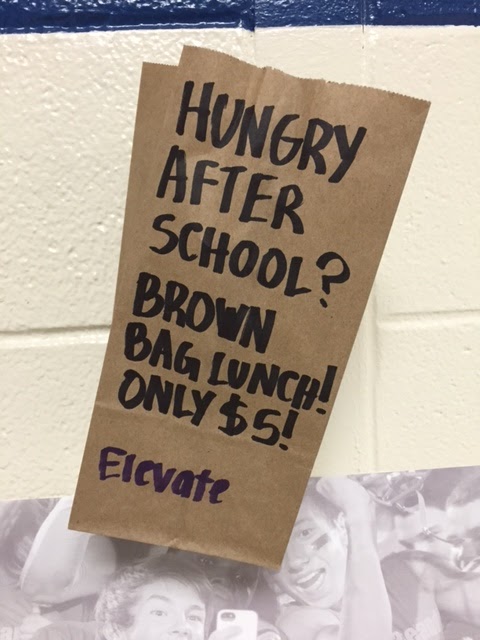 HUNGRY
AFTER
SCHOOL?
BROWN
BAG LUNCH!
ONLY $5!
Elevate